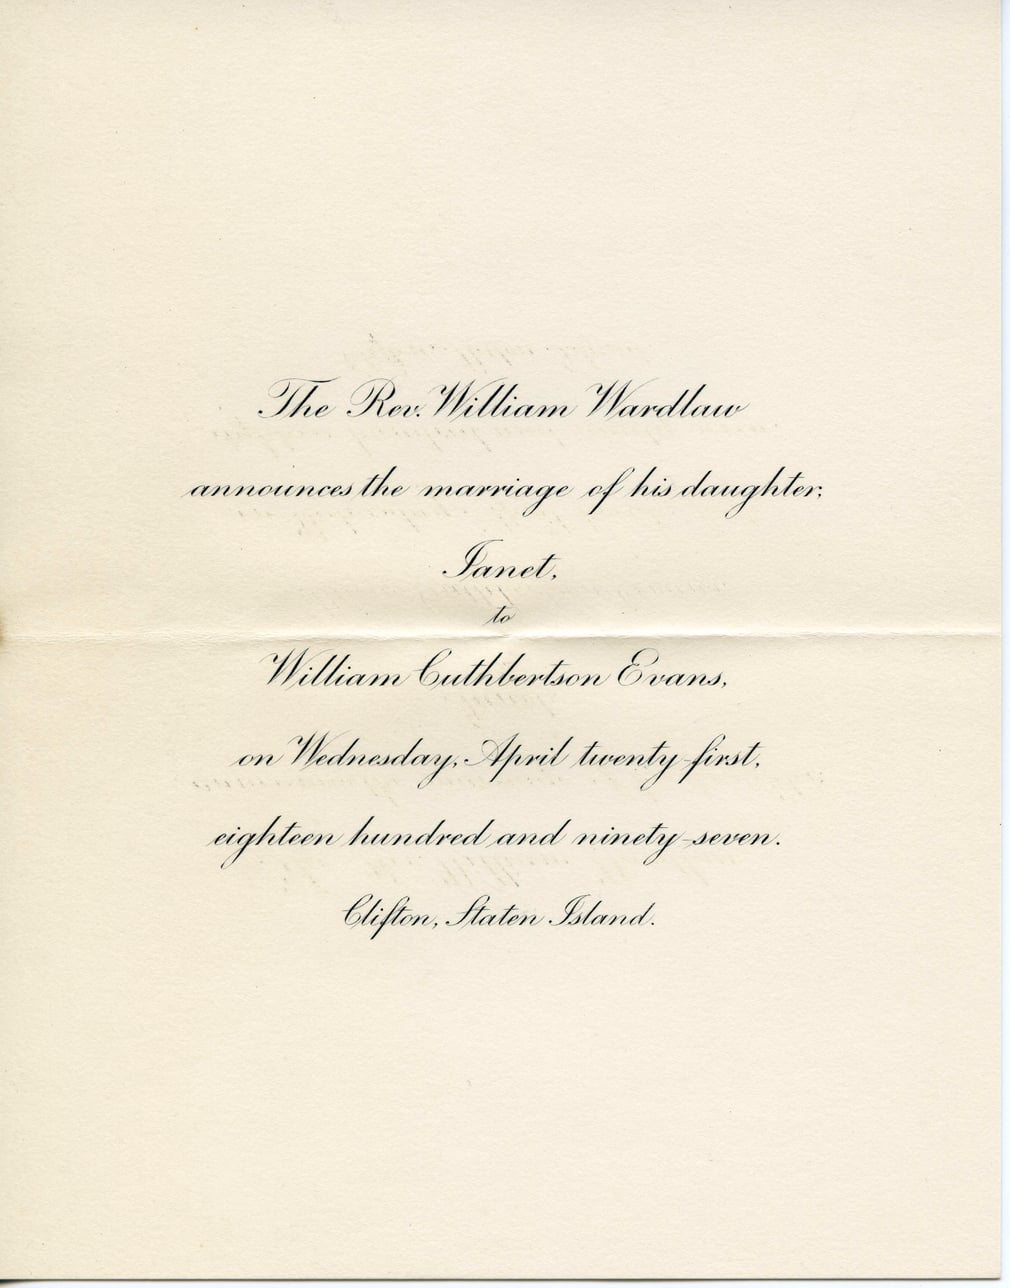 The Rev. William Wardlaw
announces the marriage of his daughter,
Janet,
to
William Cuthbertson Evans,
on Wednesday, April twenty-first,
eighteen hundred and ninety-seven.
Clifton, Staten Island.